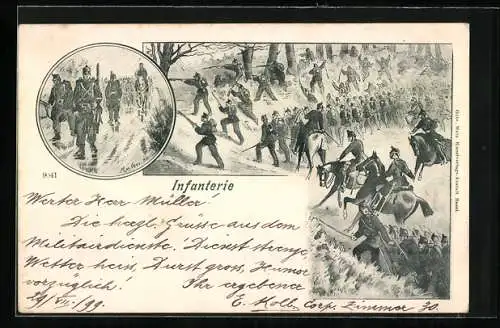 9041
Infanterie
Werter Herr Müller!
Die herzl. Grüsse aus dem
Militärdienste. Dienst strenge,
Wetter heis, Durst gross, Humor
vorzüglich! Ihr ergebene
29/VI./99. E. Kolb, Corp. Zimmer 30.